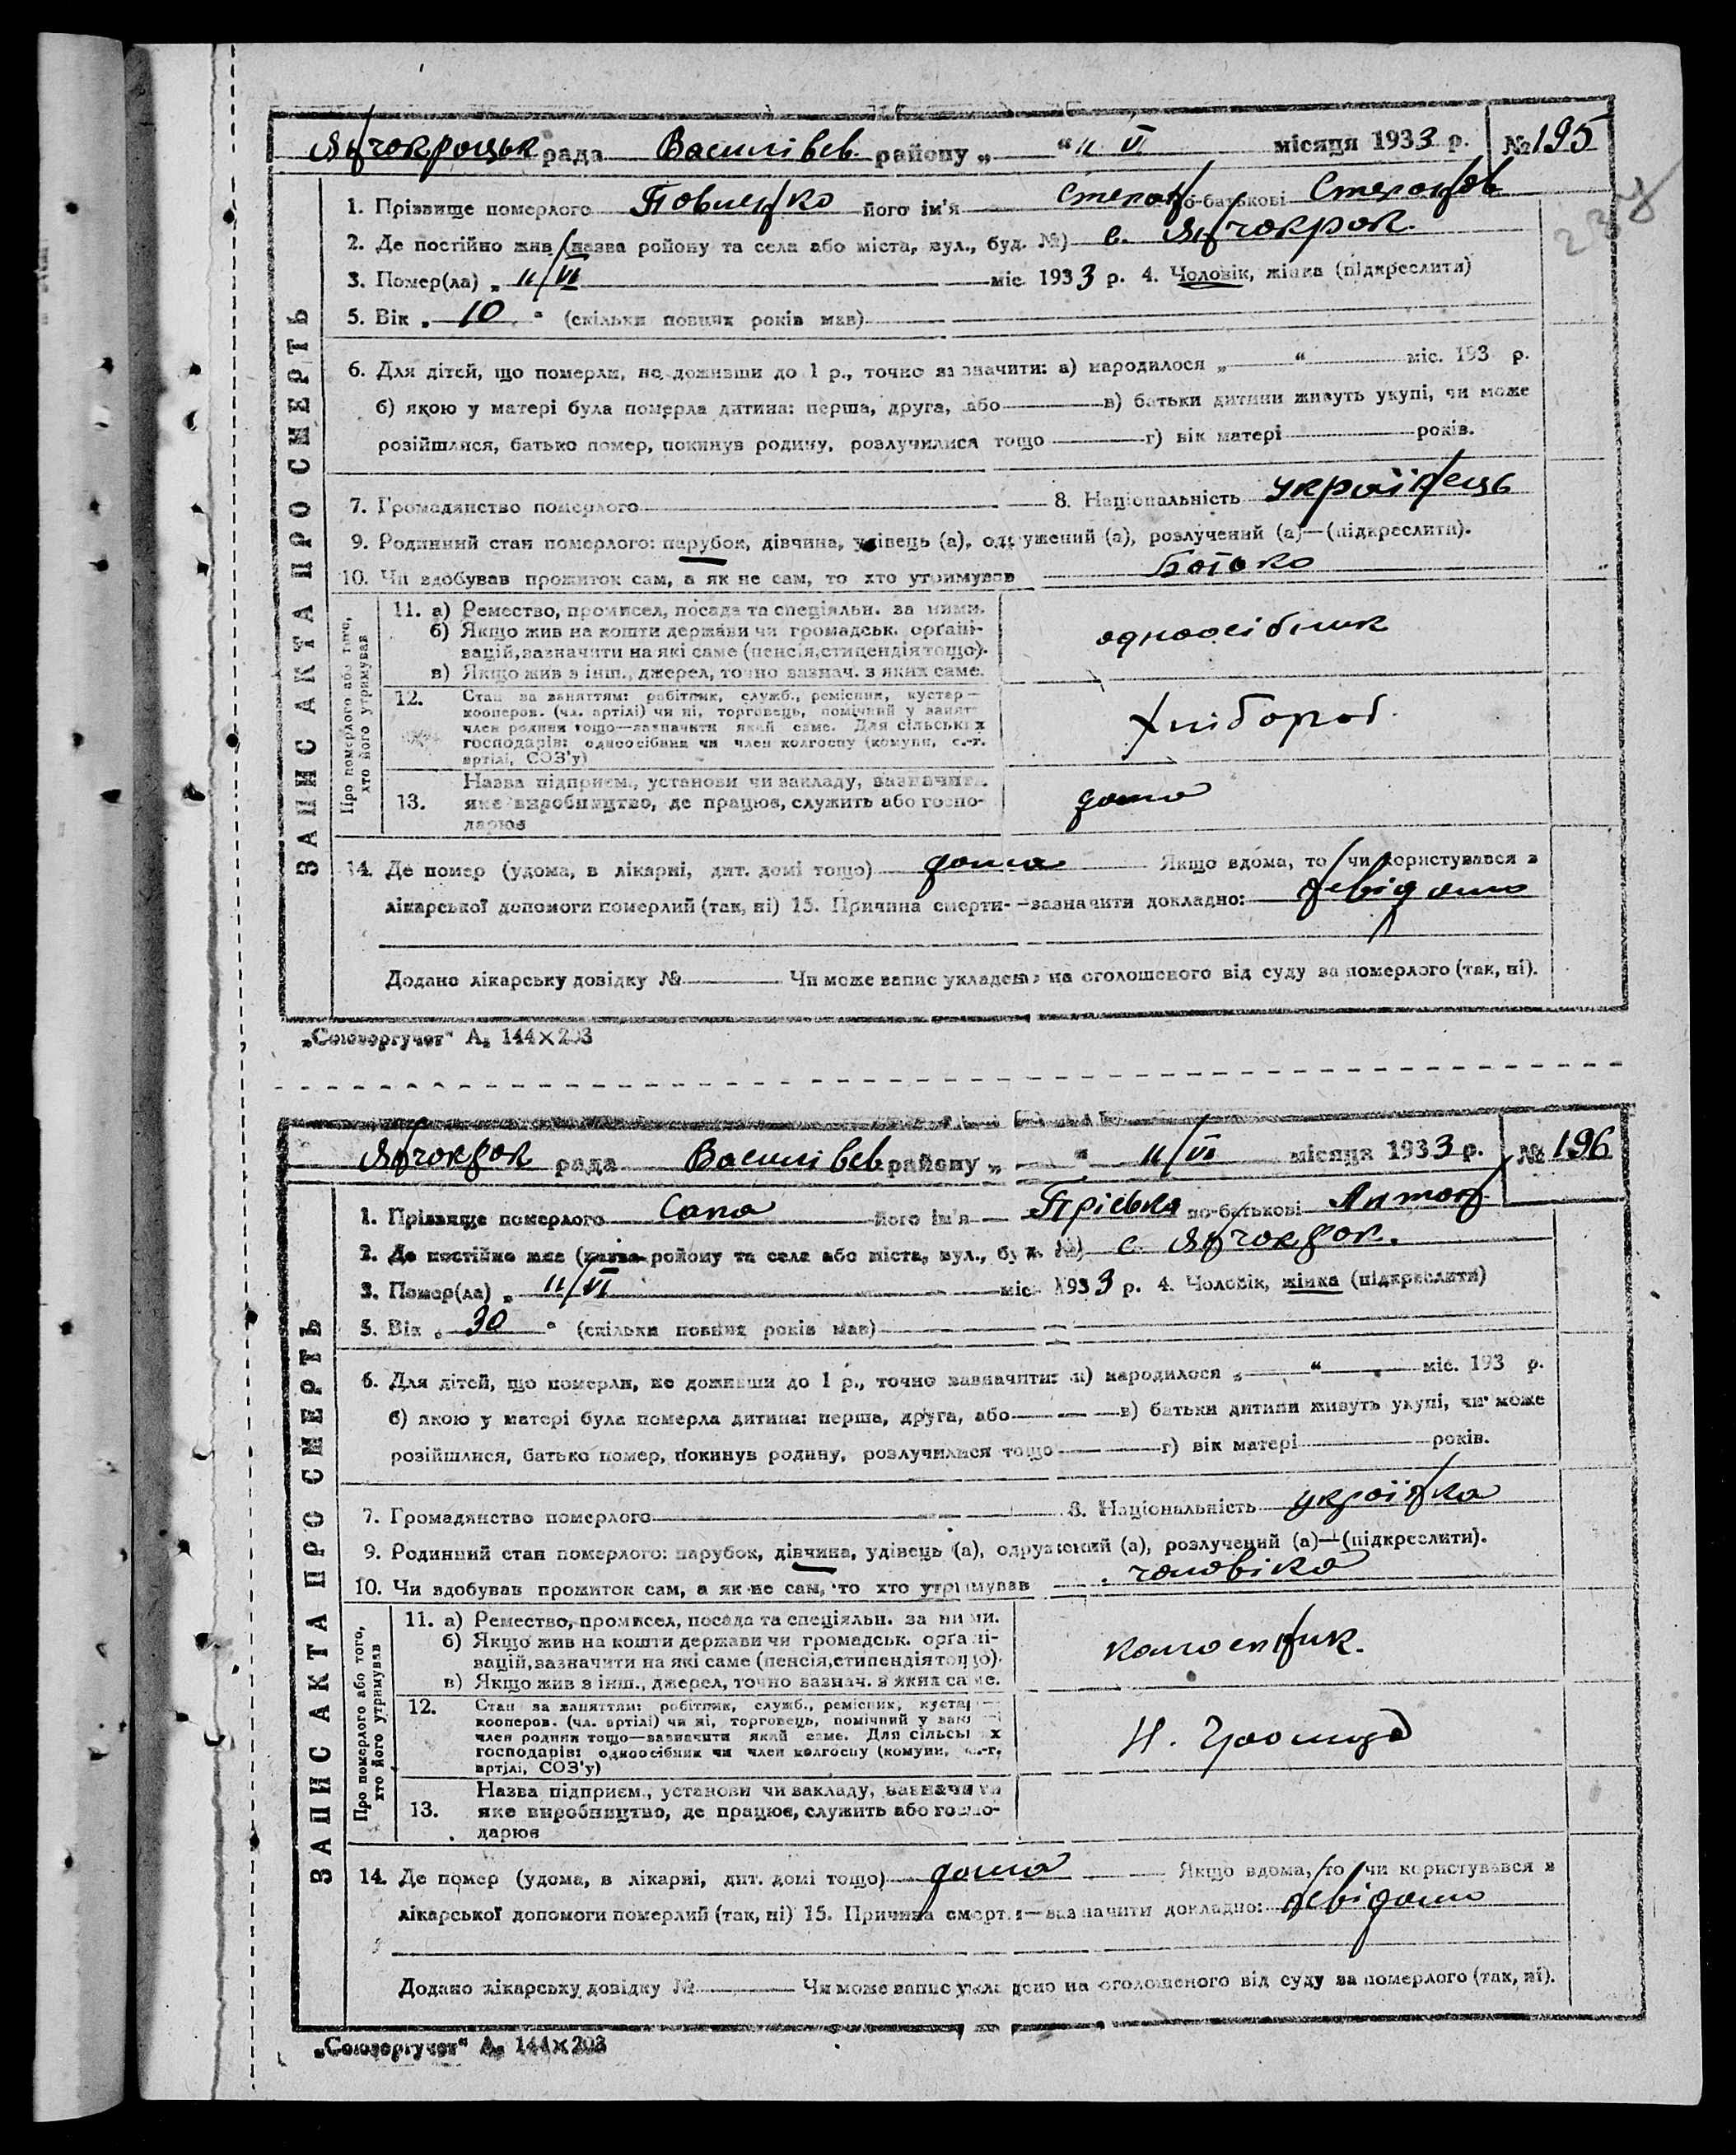 Янчокрацьк рада Василівсь району „ “ 11 VI місяця 1933 р. № 195
1. Прізвище померлого Павленко його ім'я Степан по-батькові Степанов
2. Де постійно жив (назва району та села або міста, вул., буд. №) с. Янчокрак.
3. Помер(ла) „ 11/VI міс. 1933 р. 4. Чоловік, жінка (підкреслити)
5. Вік „ 10 “ (скільки повних років мав)
6. Для дітей, що померли, не доживши до 1 р., точно зазначити: а) народилося „ “ міс. 193 р.
б) якою у матері була померла дитина: перша, друга, або в) батьки дитини живуть укупі, чи може
розійшлися, батько помер, покинув родину, розлучилися тощо г) вік матері років.
7. Громадянство померлого 8. Національність українець
9. Родинний стан померлого: парубок, дівчина, удівець (а), одружений (а), розлучений (а)—(підкреслити).
10. Чи здобував прожиток сам, а як не сам, то хто утримував батько
ЗАПИС АКТА ПРО СМЕРТЬ
Про померлого або того, хто його утримував
11. а) Ремество, промисел, посада та спеціяльн. за ними.
б) Якщо жив на кошти держави чи громадськ. органі-
зацій, зазначити на які саме (пенсія, стипендія тощо).
в) Якщо жив з інш., джерел, точно зазнач. з яких саме.
одноосібник
12. Стан за заняттям: робітник, служб., ремісник, кустар—
кооперов. (чл. артілі) чи ні, торговець, помічний у занят—
член родини тощо—зазначити який саме. Для сільських
господарів: одноосібник чи член колгоспу (комуни, с.-г.
артілі, СОЗ'у)
хлібороб.
13. Назва підприєм., установи чи закладу, зазначити
яке виробництво, де працює, служить або госпо-
дарює
дома
14. Де помер (удома, в лікарні, дит. домі тощо) дома Якщо вдома, то чи користувався з
лікарської допомоги померлий (так, ні) 15. Причина смерти—зазначити докладно: невідомо
Додано лікарську довідку № Чи може запис укладено на оголошеного від суду за померлого (так, ні).
„Союзоргучет“ А₅ 144×203
Янчокрак рада Василівськ району „ “ 11/VI місяця 1933 р. № 196
1. Прізвище померлого Сапа його ім'я Пріська по-батькові Антон
2. Де постійно жив (назва району та села або міста, вул., буд. №) с. Янчокрак.
3. Помер(ла) „ 11/VI міс. 1933 р. 4. Чоловік, жінка (підкреслити)
5. Вік „ 30 “ (скільки повних років мав)
6. Для дітей, що померли, не доживши до 1 р., точно зазначити: а) народилося „ “ міс. 193 р.
б) якою у матері була померла дитина: перша, друга, або в) батьки дитини живуть укупі, чи може
розійшлися, батько помер, покинув родину, розлучилися тощо г) вік матері років.
7. Громадянство померлого 8. Національність українка
9. Родинний стан померлого: парубок, дівчина, удівець (а), одружений (а), розлучений (а)—(підкреслити).
10. Чи здобував прожиток сам, а як не сам, то хто утримував чоловіка
ЗАПИС АКТА ПРО СМЕРТЬ
Про померлого або того, хто його утримував
11. а) Ремество, промисел, посада та спеціяльн. за ними.
б) Якщо жив на кошти держави чи громадськ. органі-
зацій, зазначити на які саме (пенсія, стипендія тощо).
в) Якщо жив з інш., джерел, точно зазнач. з яких саме.
колгоспник.
12. Стан за заняттям: робітник, служб., ремісник, кустар—
кооперов. (чл. артілі) чи ні, торговець, помічний у занят—
член родини тощо—зазначити який саме. Для сільських
господарів: одноосібник чи член колгоспу (комуни, с.-г.
артілі, СОЗ'у)
13. Назва підприєм., установи чи закладу, зазначити
яке виробництво, де працює, служить або госпо-
дарює
14. Де помер (удома, в лікарні, дит. домі тощо) дома Якщо вдома, то чи користувався з
лікарської допомоги померлий (так, ні) 15. Причина смерти—зазначити докладно: невідомо
Додано лікарську довідку № Чи може запис укладено на оголошеного від суду за померлого (так, ні).
„Союзоргучет“ А₅ 144×203